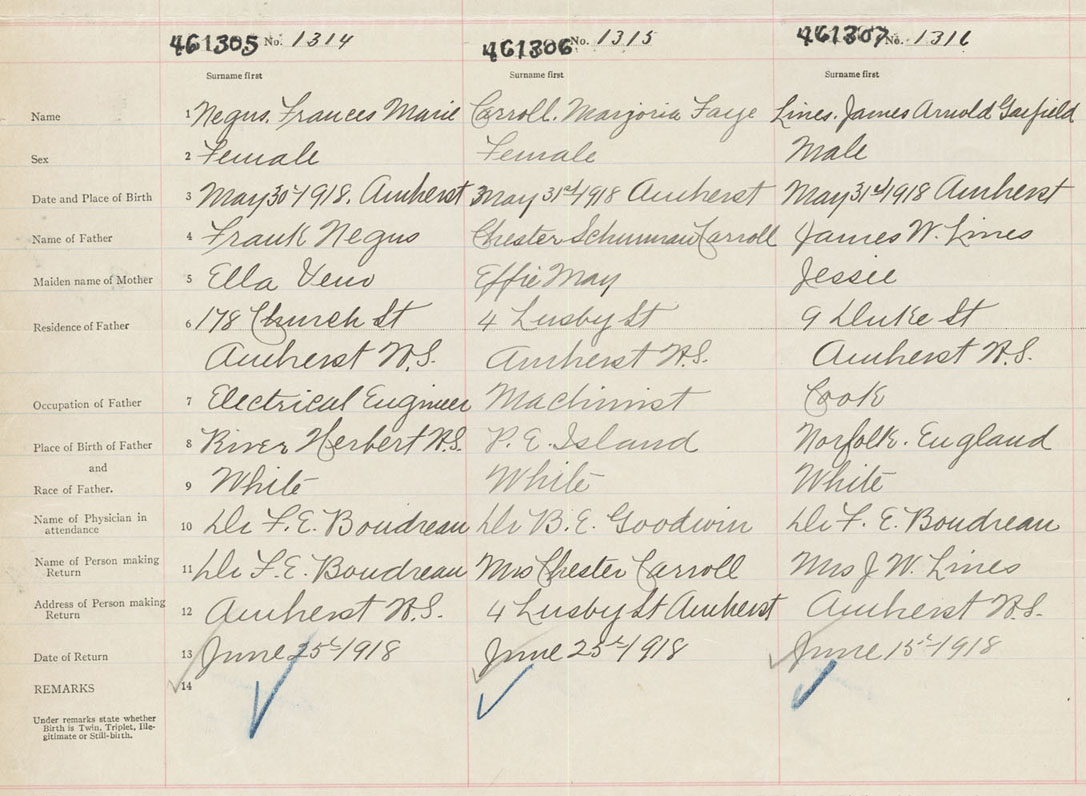 461305 No. 1314 461306 No. 1315 461307 No. 1316
Surname first Surname first Surname first
Name 1 Negus. Frances Marie Carroll. Marjoria Faye Lines. James Arnold Garfield
Sex 2 Female Female Male
Date and Place of Birth 3 May 30 1918. Amherst May 31st 1918 Amherst May 31st 1918 Amherst
Name of Father 4 Frank Negus Chester Schurman Carroll James W. Lines
Maiden name of Mother 5 Ella Veno Effie May Jessie
Residence of Father 6 178 Church St 4 Lusby St 9 Duke St
Amherst N.S. Amherst N.S. Amherst N.S.
Occupation of Father 7 Electrical Engineer Machinist Cook
Place of Birth of Father 8 River Herbert N.S. P. E. Island Norfolk. England
and
Race of Father. 9 White White White
Name of Physician in
attendance 10 Dr F. E. Boudreau Dr B. E. Goodwin Dr F. E. Boudreau
Name of Person making
Return 11 Dr F. E. Boudreau Mrs Chester Carroll Mrs J W. Lines
Address of Person making
Return 12 Amherst N.S. 4 Lusby St Amherst Amherst N.S.
Date of Return 13 June 25 1918 June 25 1918 June 15 1918
REMARKS 14
Under remarks state whether
Birth is Twin, Triplet, Ille-
gitimate or Still-birth.